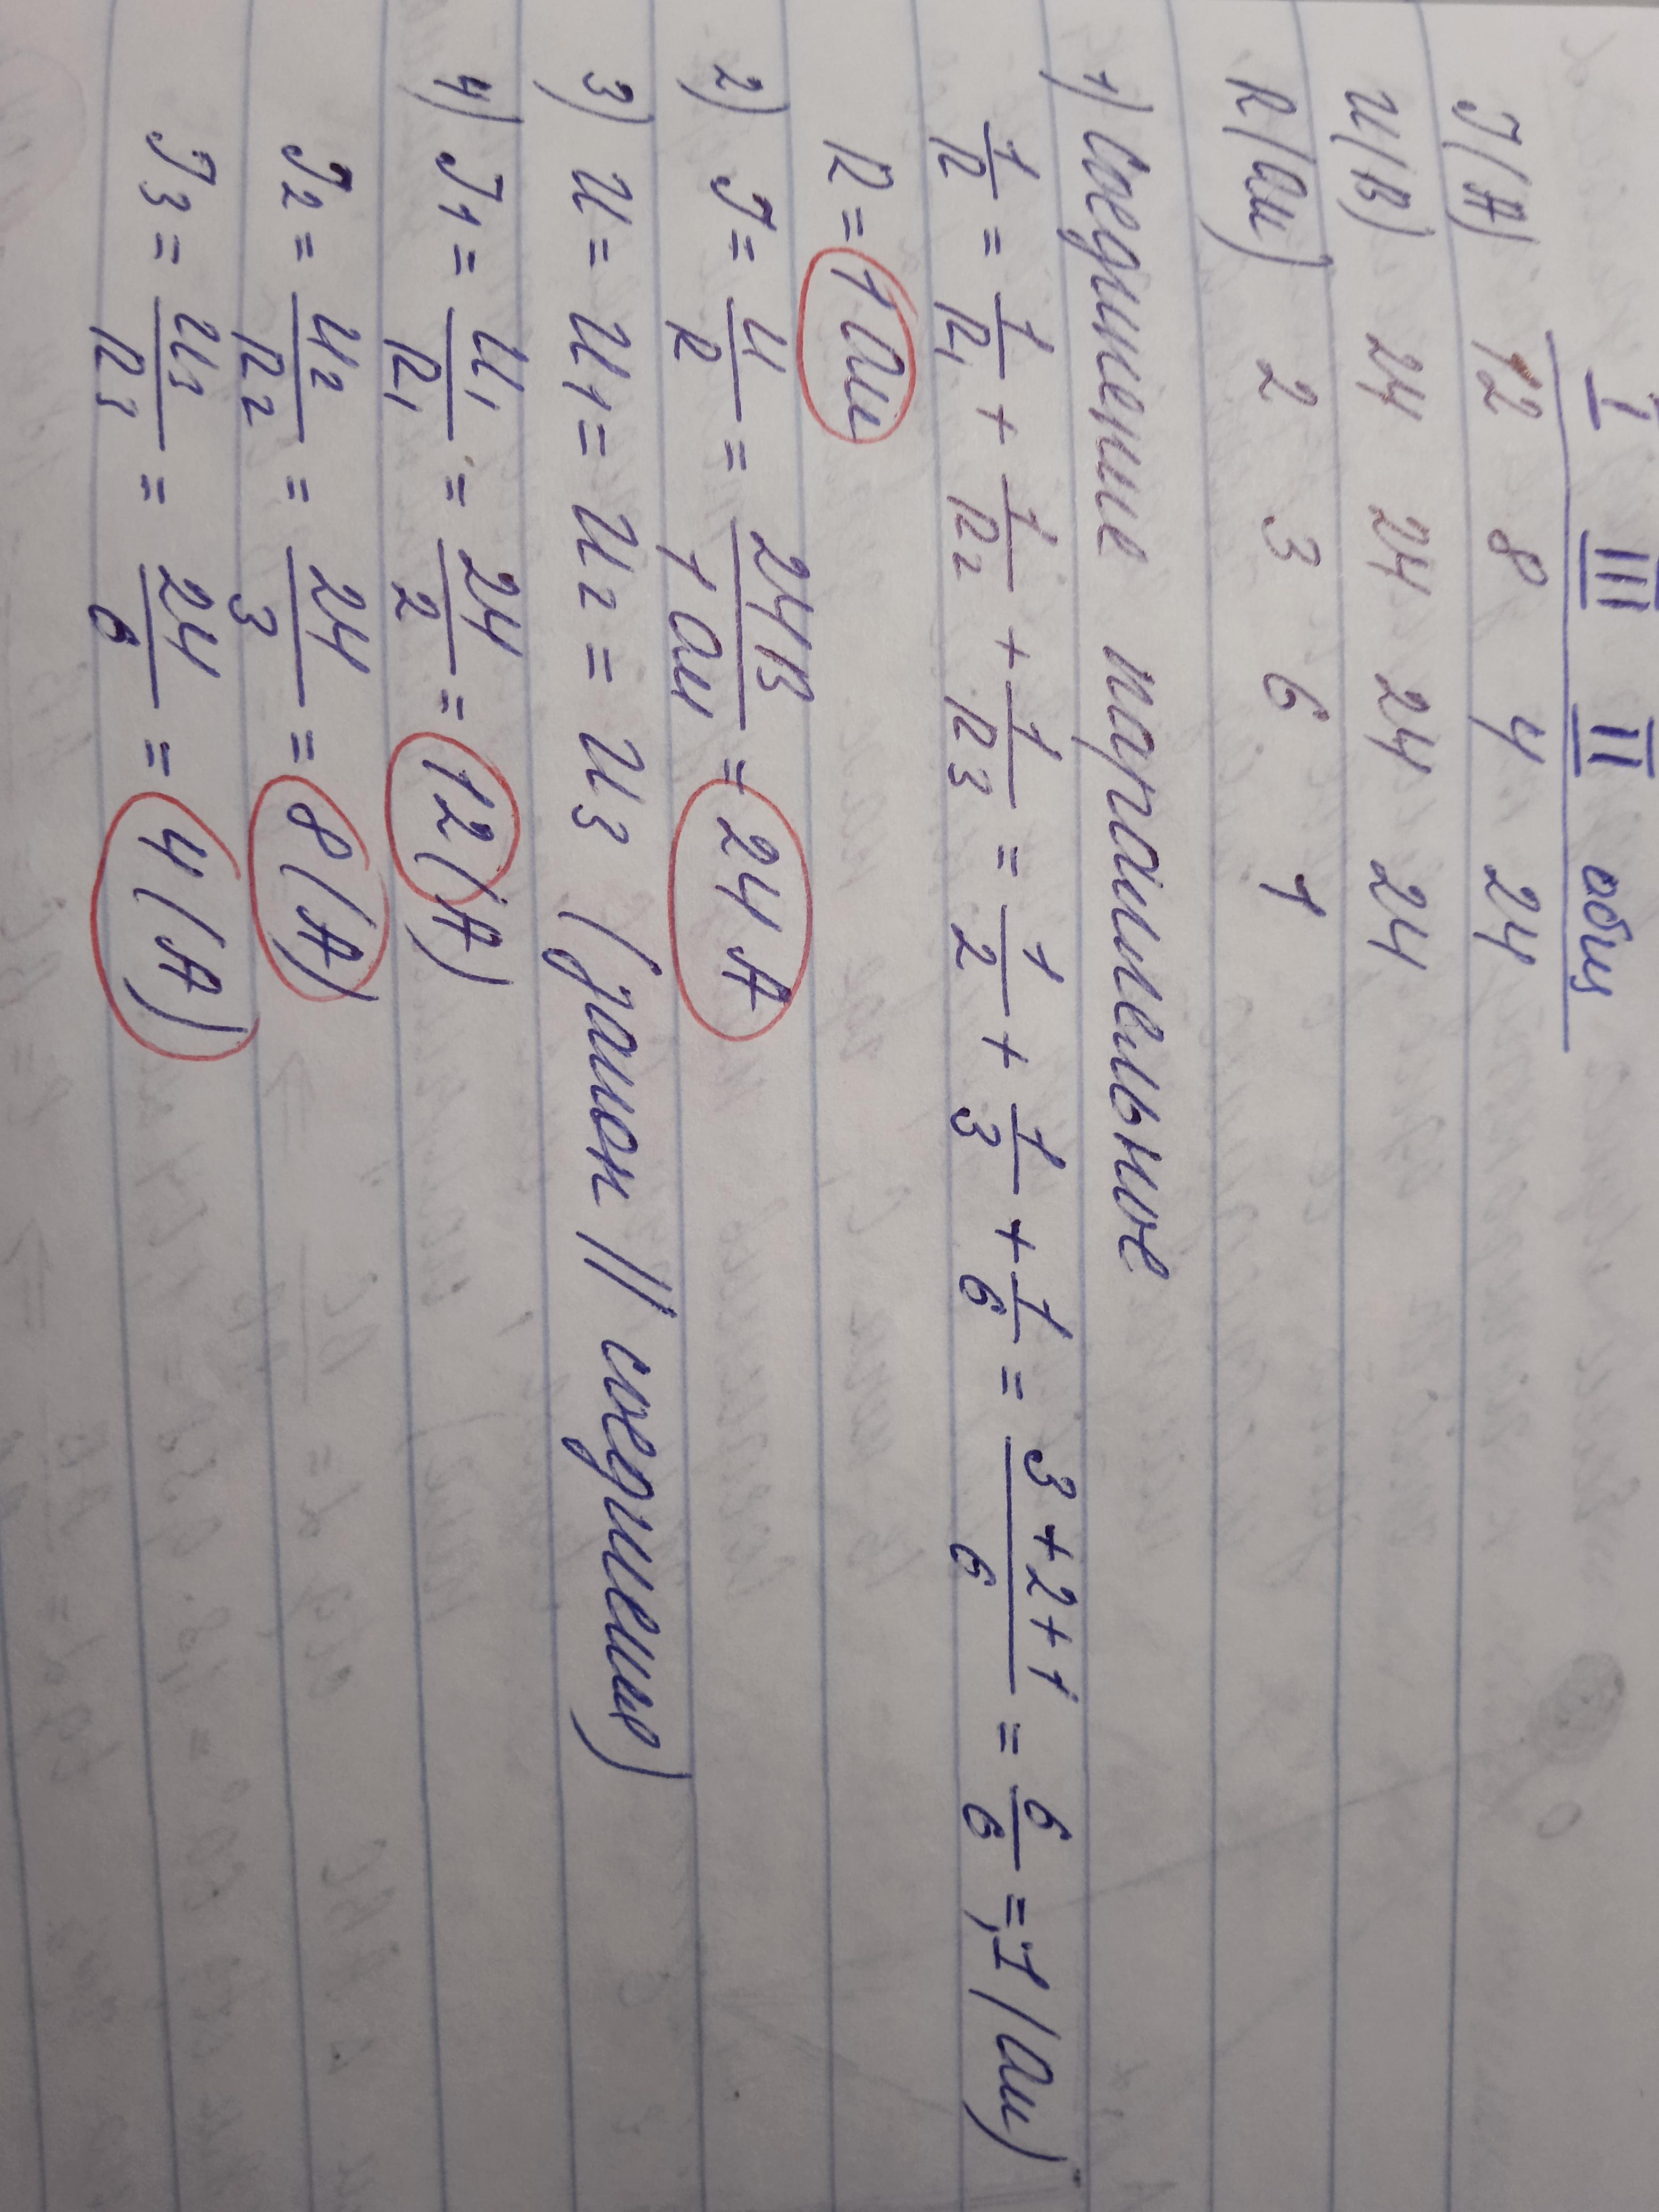 I III II общ
I(A) 12 8 4 24
U(В) 24 24 24 24
R(Ом) 2 3 6 1
1) соединение параллельное
1/R = 1/R1 + 1/R2 + 1/R3 = 1/2 + 1/3 + 1/6 = (3+2+1)/6 = 6/6 = 1 (Ом)
R = 1 Ом
2) I = U/R = 24В/1 Ом = 24 А
3) U = U1 = U2 = U3 (закон || соединение)
4) I1 = U1/R1 = 24/2 = 12 (А)
I2 = U2/R2 = 24/3 = 8 (А)
I3 = U3/R3 = 24/6 = 4 (А)